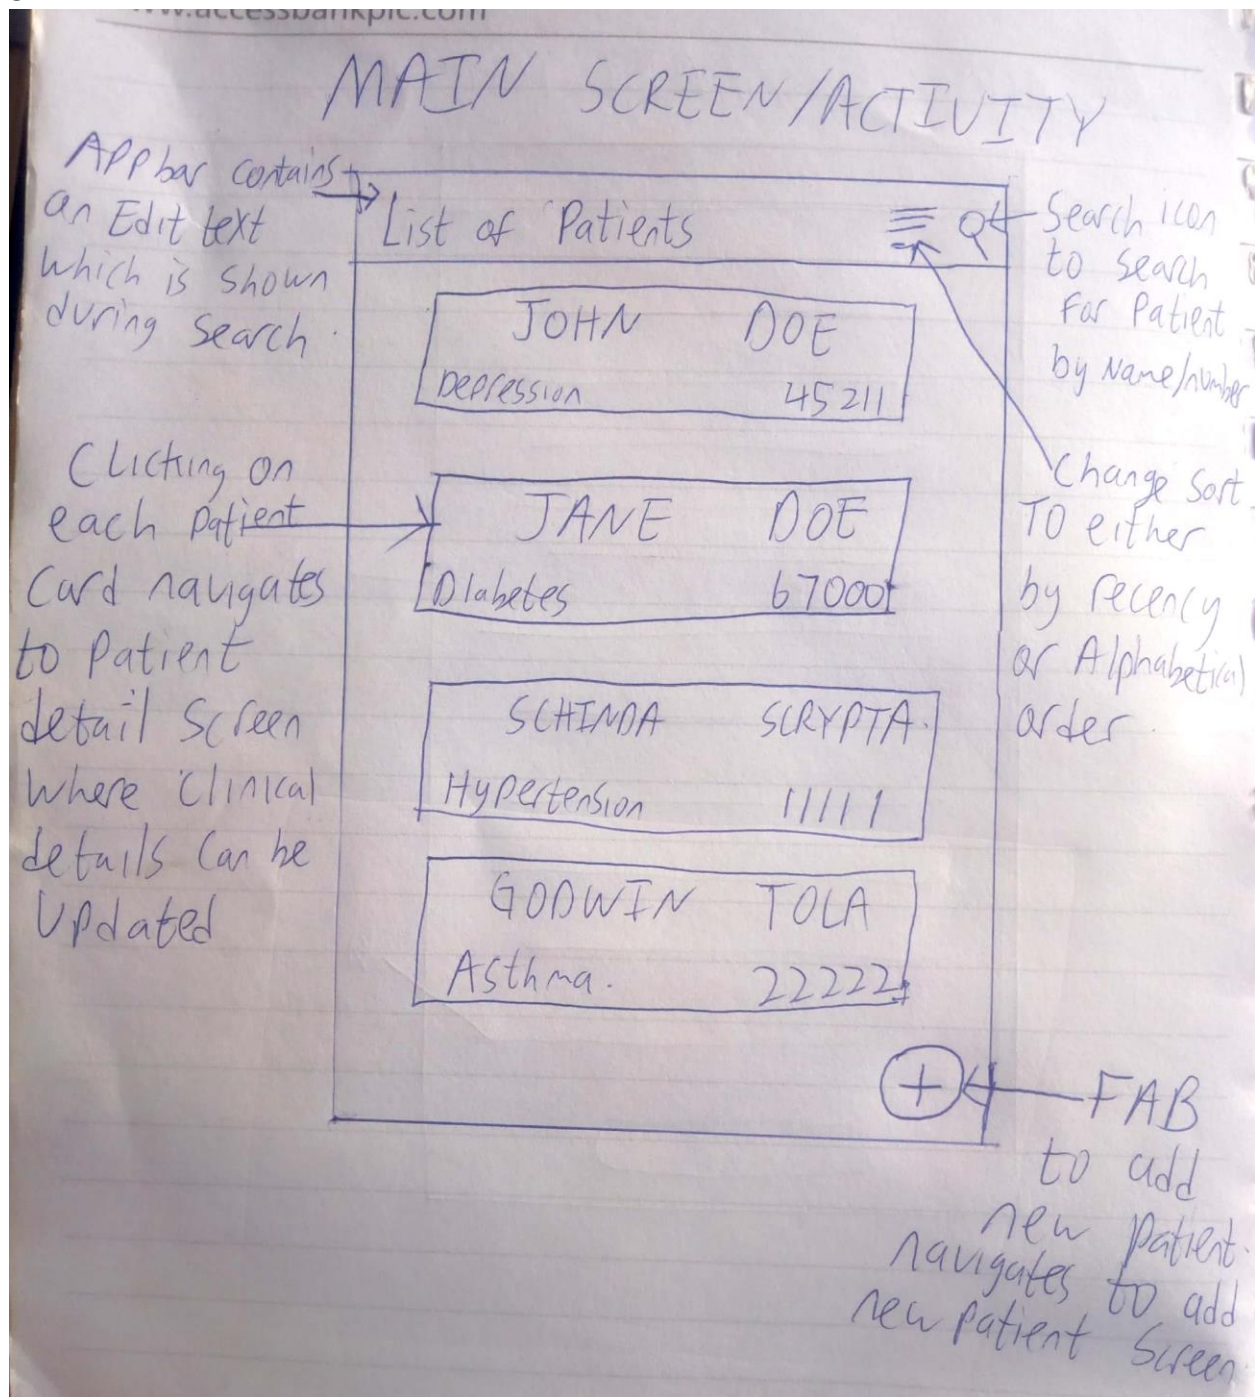 www.accessbankplc.com
MAIN SCREEN/ACTIVITY
APPbar contains
an Edit text
which is shown
during search.
List of Patients
Search icon
to search
For Patient
by Name/number
JOHN DOE
Depression 45211
Change Sort
TO either
by recency
or Alphabetical
order.
Clicking on
each patient
Card navigates
to Patient
detail Screen
where Clinical
details Can be
Updated
JANE DOE
Diabetes 67000
SCHINDA SCRYPTA.
Hypertension 11111
GODWIN TOLA
Asthma. 22222
+
FAB
to add
new patient.
navigates to add
new patient Screen.